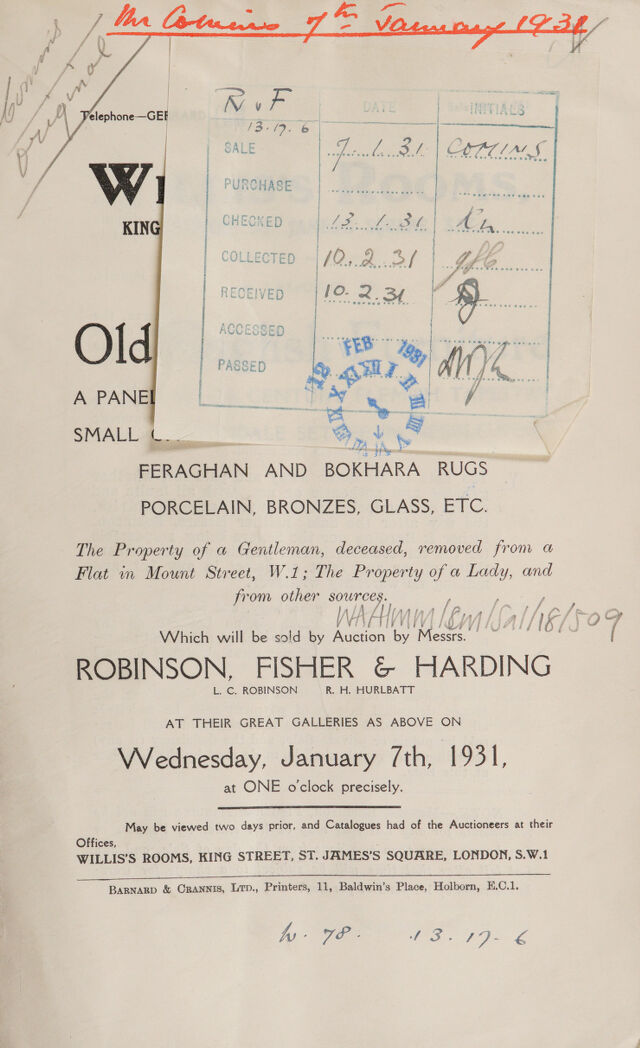 Mr Comins 7th January 1931
Comins
original
Telephone—GE
R v F
13.17.6
DATE
INITIALS
SALE 7.1.31 COMINS
PURCHASE
CHECKED 13.1.31
COLLECTED 10.2.31
RECEIVED 10.2.31
ACCESSED
PASSED
12 FEB 1931
XII I II III V VI VII VIII IX X XI
WI
KING
Old
A PANEL
SMALL C
FERAGHAN AND BOKHARA RUGS
PORCELAIN, BRONZES, GLASS, ETC.
The Property of a Gentleman, deceased, removed from a
Flat in Mount Street, W.1; The Property of a Lady, and
from other sources.
WA/HMM/CM/Sal/18/509
Which will be sold by Auction by Messrs.
ROBINSON, FISHER & HARDING
L. C. ROBINSON R. H. HURLBATT
AT THEIR GREAT GALLERIES AS ABOVE ON
Wednesday, January 7th, 1931,
at ONE o'clock precisely.
May be viewed two days prior, and Catalogues had of the Auctioneers at their
Offices,
WILLIS'S ROOMS, KING STREET, ST. JAMES'S SQUARE, LONDON, S.W.1
BARNARD & CRANNIS, LTD., Printers, 11, Baldwin's Place, Holborn, E.C.1.
h. 78. 13.17.6